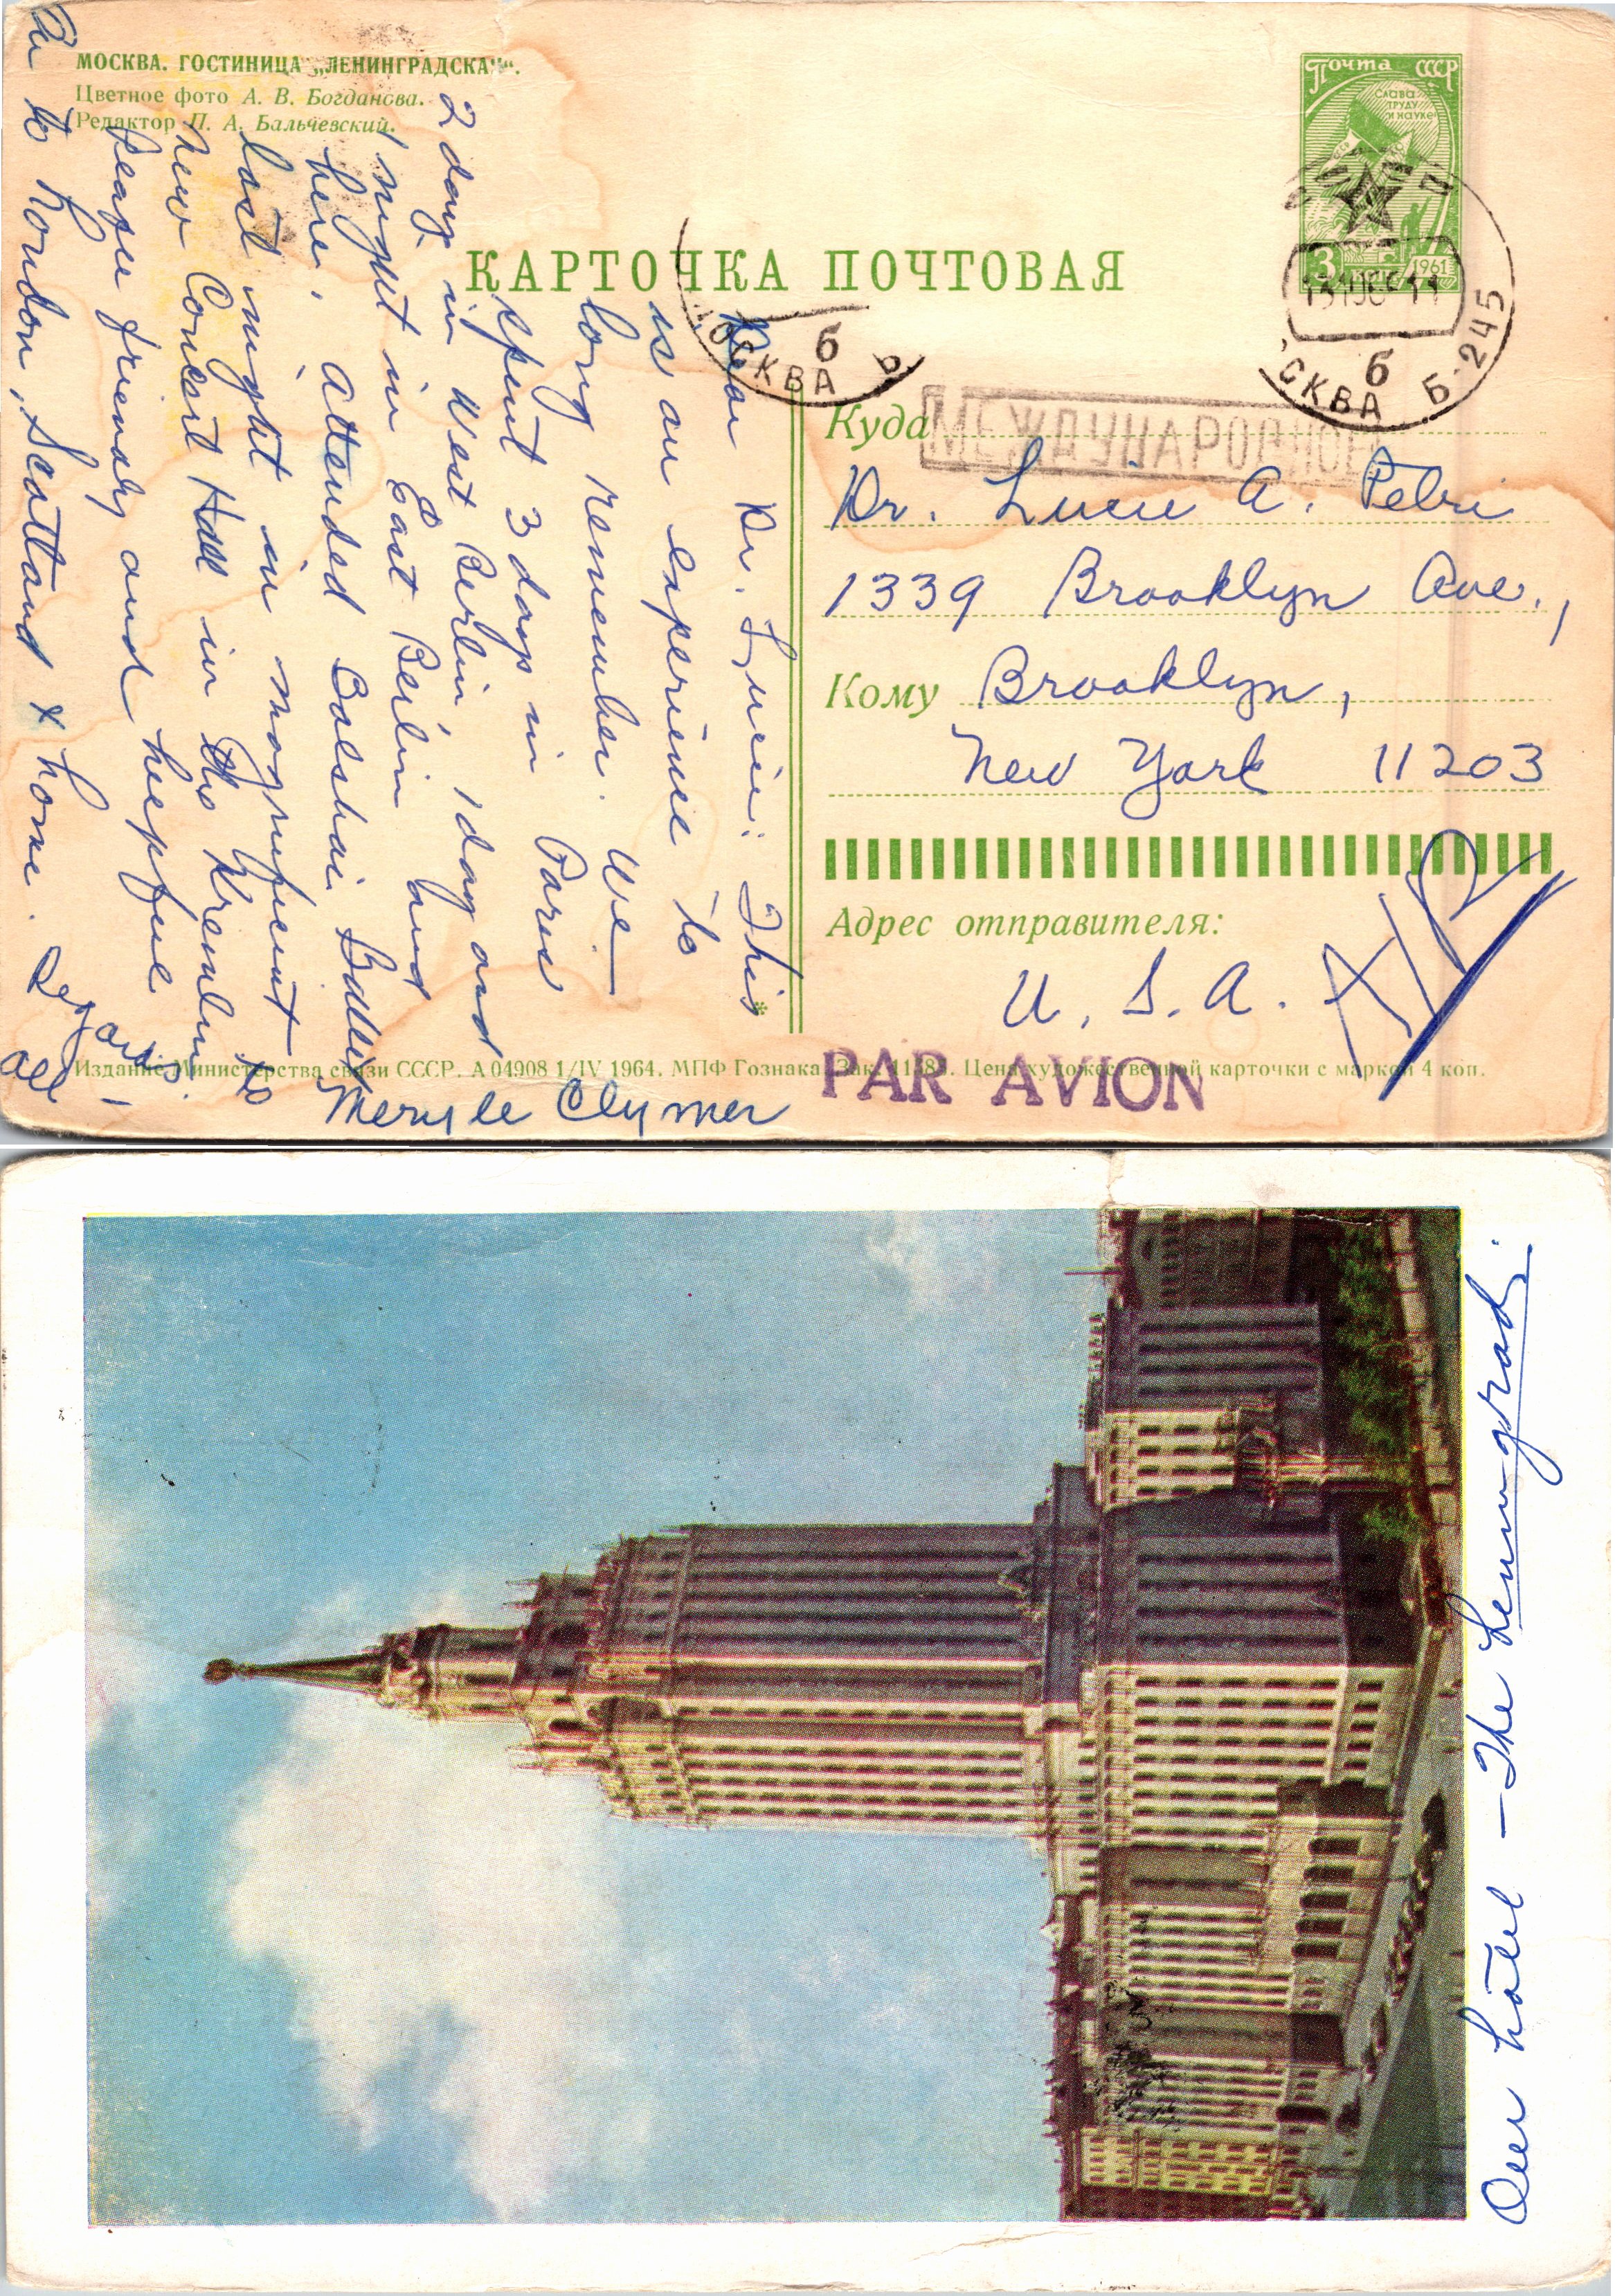 МОСКВА. ГОСТИНИЦА „ЛЕНИНГРАДСКА
Цветное фото А. В. Богданова.
Редактор П. А. Бальчевский.
Почта СССР
СЛАВА
ТРУДУ
И НАУКЕ
3
1961
КАРТОЧКА ПОЧТОВАЯ
ОСКВА
б
СКВА Б-245
б
МЕЖДУНАРОДНОЕ
Куда
Dr. Lucie A. Petri
1339 Brooklyn Ave.,
Кому Brooklyn,
New York 11203
Адрес отправителя:
U. S. A.
AIR
PAR AVION
Dear Dr. Lucie: This
is an experience to
long remember. We
spent 3 days in Paris
2 days in West Berlin, 1 day and
1 night in East Berlin and
here. Attended Bolshoi Ballet
last night in magnificent
new Concert Hall in the Kremlin.
People friendly and helpful
On to London, Scotland & home.
to
Regards
all –
Meryle Clymer
Издание Министерства связи СССР. А 04908 1/IV 1964. МПФ Гознака. Зак. Цена художественной карточки с маркой 4 коп.
Our hotel – The Leningrad.